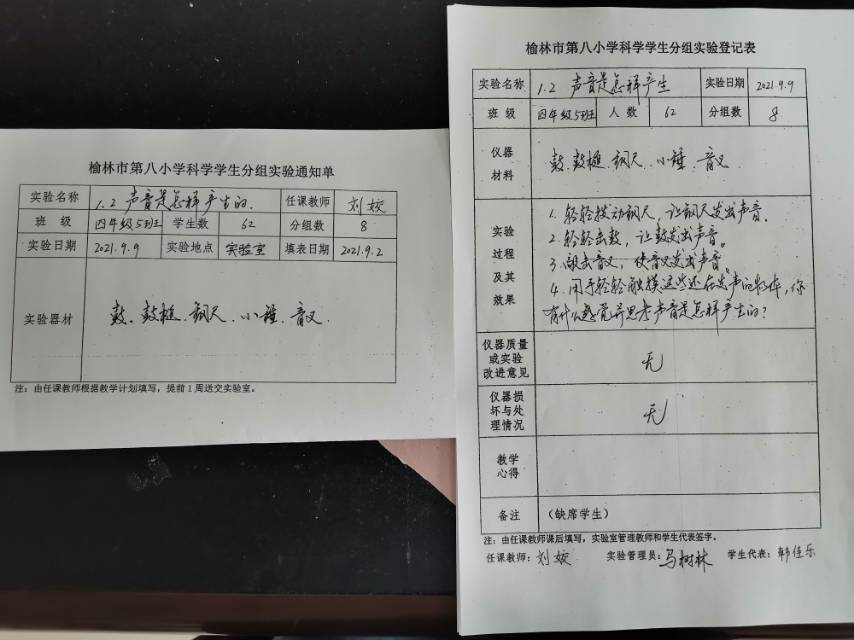 榆林市第八小学科学学生分组实验通知单
实验名称 1.2 声音是怎样产生的. 任课教师 刘姣
班 级 四年级5班 学生数 62 分组数 8
实验日期 2021.9.9 实验地点 实验室 填表日期 2021.9.2
实验器材 鼓、鼓槌、钢尺、小锤、音叉.
注：由任课教师根据教学计划填写，提前1周送交实验室。
榆林市第八小学科学学生分组实验登记表
实验名称 1.2 声音是怎样产生 实验日期 2021.9.9
班 级 四年级5班 人 数 62 分组数 8
仪器
材料
鼓、鼓槌、钢尺、小锤、音叉.
实验
过程
及其
效果
1. 轻轻拨动钢尺，让钢尺发出声音.
2. 轻轻击鼓，让鼓发出声音。
3. 敲击音叉，使音叉发出声音。
4. 用手轻轻触摸这些还在发声的物体，你
有什么感觉并思考声音是怎样产生的？
仪器质量
或实验
改进意见
无
仪器损
坏与处
理情况
无
教学
心得
备注 （缺席学生）
注：由任课教师课后填写，实验室管理教师和学生代表签字。
任课教师：刘姣 实验管理员：马树林 学生代表：韩佳乐